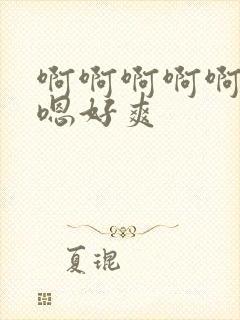 啊啊啊啊啊
嗯好爽
夏琨